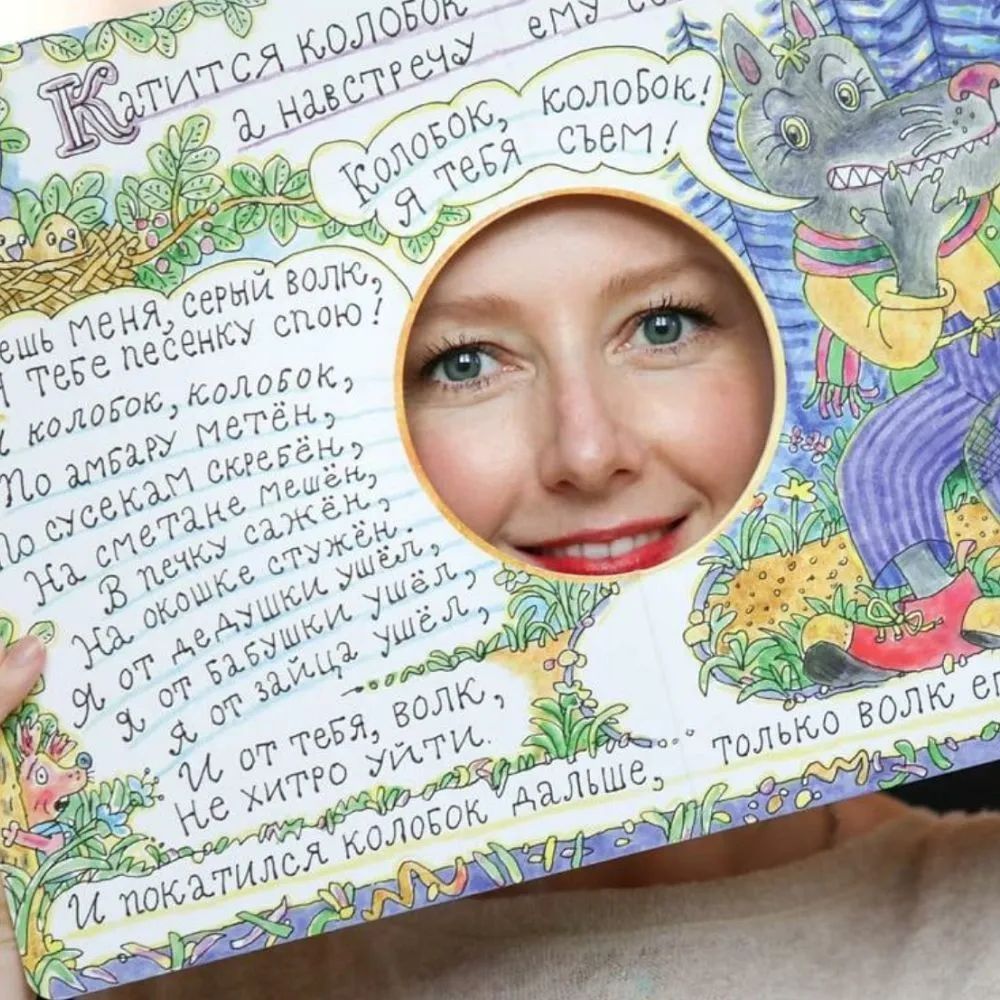 Катится колобок
а навстречу ему
Колобок, колобок!
Я тебя съем!
меня, серый волк,
тебе песенку спою!
колобок, колобок,
По амбару метён,
По сусекам скребён,
На сметане мешён,
В печку сажён,
На окошке стужён.
Я от дедушки ушёл,
Я от бабушки ушёл,
Я от зайца ушёл,
И от тебя, волк,
Не хитро уйти.
И покатился колобок дальше, только волк ег